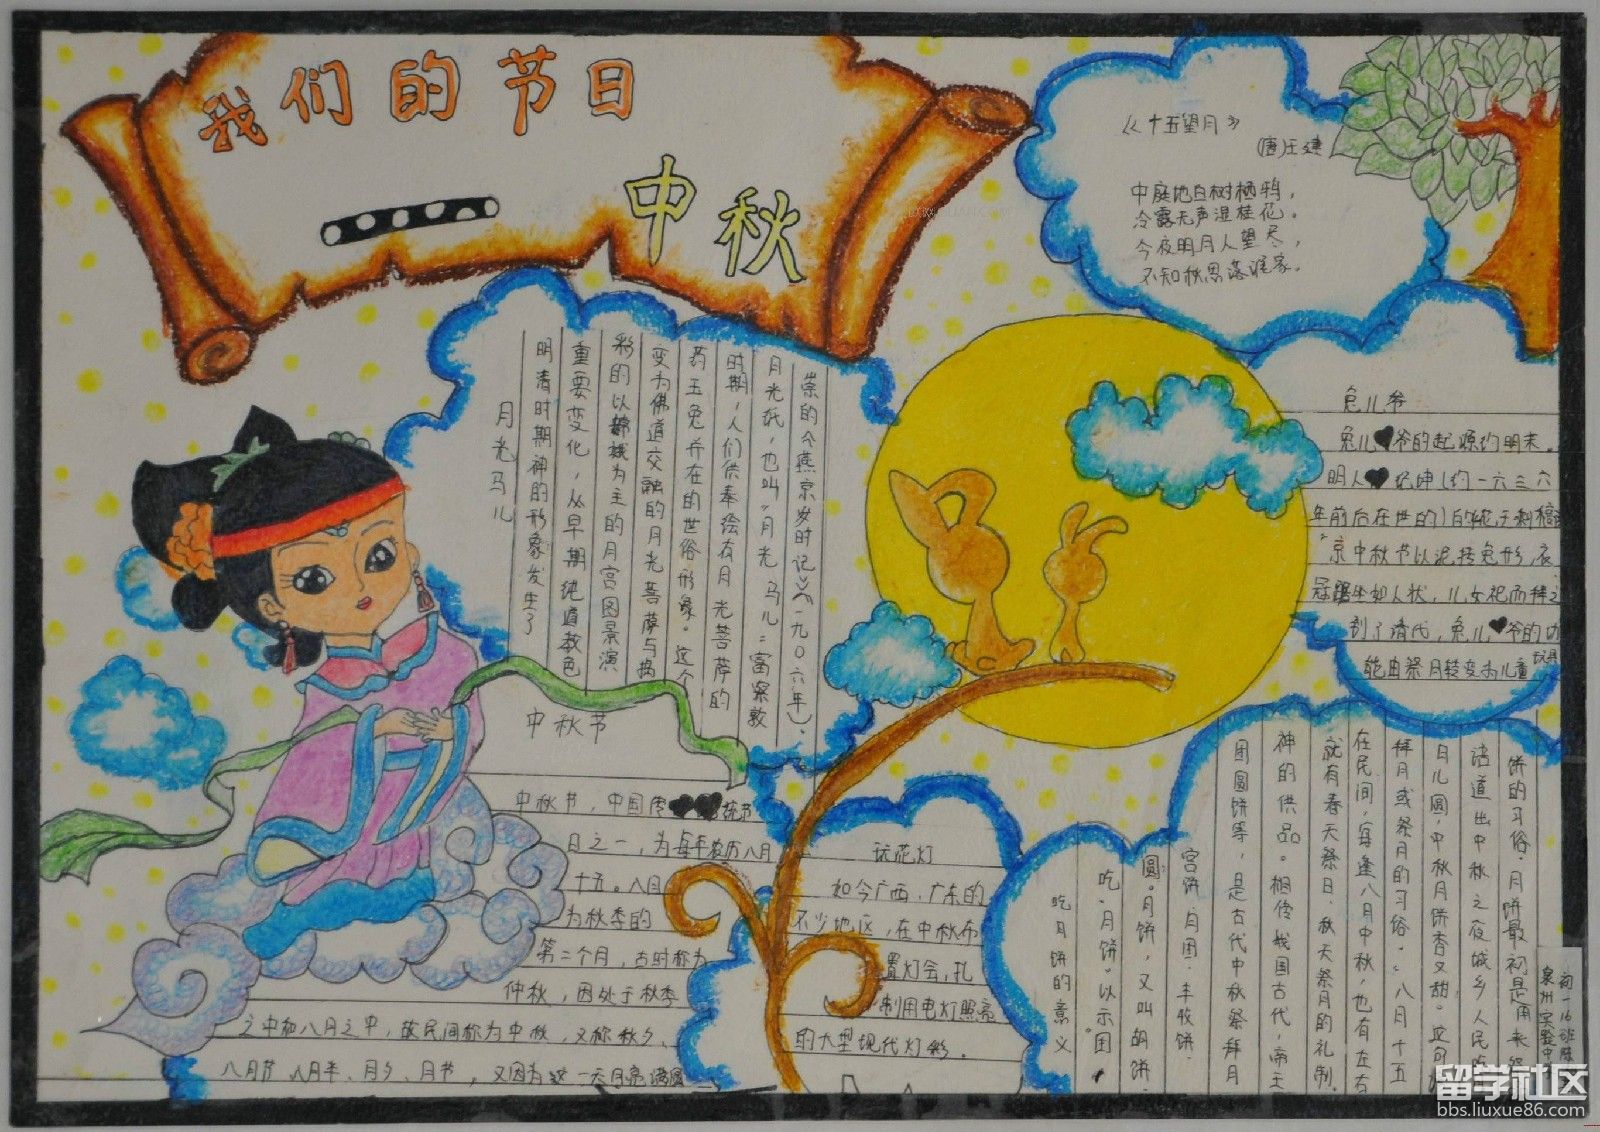 我们的节日
中秋
《十五望月》
(唐)王建
中庭地白树栖鸦，
冷露无声湿桂花。
今夜明月人望尽，
不知秋思落谁家。
月光马儿
明清时期神的形象发生了
重要变化，从早期纯道教色
彩的以嫦娥为主的月宫图景演
变为佛道交融的月光菩萨与捣
药玉兔并在的世俗形象。这个
时期，人们供奉绘有月光菩萨的
月光纸，也叫"月光马儿"富察敦
崇的《燕京岁时记》(一九〇六年)、
兔儿爷
兔儿爷的起源约明末。
明人纪坤(约一六三六
年前后在世的)
京中秋节以泥抟兔形，衣
冠踞坐如人状，儿女祀而拜之
到了清代，兔儿爷的功
能由祭月转变为儿童玩具
中秋节
中秋节，中国传统节
日之一，为每年农历八月
十五。八月
为秋季的
第二个月，古时称为
仲秋，因处于秋季
之中和八月之中，故民间称为中秋，又称秋夕、
八月节 八月半、月夕、月节，又因为这一天月亮满圆
玩花灯
如今广西，广东的
不少地区，在中秋布
置灯会，扎
制用电灯照亮
的大型现代灯彩。
吃月饼的意义
吃"月饼"以示"团
圆"。月饼，又叫胡饼、
宫饼、月团、丰收饼、
团圆饼等，是古代中秋祭拜月
神的供品。相传我国古代，帝王
就有春天祭日、秋天祭月的礼制。
在民间，每逢八月中秋，也有左右
拜月或祭月的习俗。"八月十五
月儿圆，中秋月饼香又甜"。这句
话道出中秋之夜城乡人民吃
饼的习俗。月饼最初是用来
初一16班
泉州实验中
留学社区
bbs.liuxue86.com